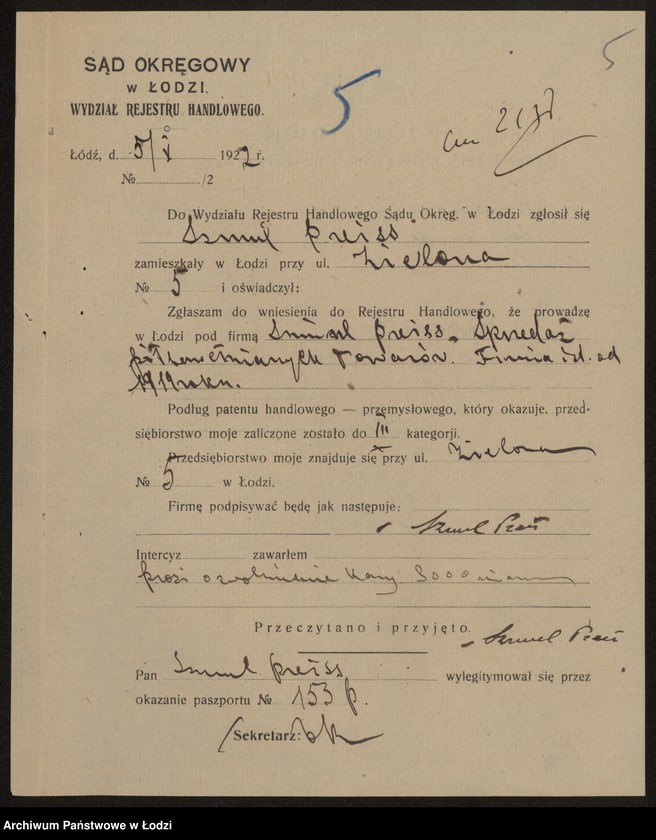 5
SĄD OKRĘGOWY
w ŁODZI.
WYDZIAŁ REJESTRU HANDLOWEGO.
5
Łódź, d. 5/V 1922 r.
№ /2
Do Wydziału Rejestru Handlowego Sądu Okręg. w Łodzi zgłosił się
Szmul Preiss
zamieszkały w Łodzi przy ul. Zielona
№ 5 i oświadczył:
Zgłaszam do wniesienia do Rejestru Handlowego, że prowadzę
w Łodzi pod firmą Szmul Preiss. Sprzedaż
półwełnianych towarów. Firma ist. od
1919 roku.
Podług patentu handlowego — przemysłowego, który okazuje, przed-
siębiorstwo moje zaliczone zostało do III kategorji.
Przedsiębiorstwo moje znajduje się przy ul. Zielona
№ 5 w Łodzi.
Firmę podpisywać będę jak następuje:
Szmul Preis
Intercyz zawarłem
prosi o zwolnienie kary 3000
Przeczytano i przyjęto. Szmul Preis
Pan Szmul Preiss wylegitymował się przez
okazanie paszportu № 153 p.
Sekretarz:
Archiwum Państwowe w Łodzi